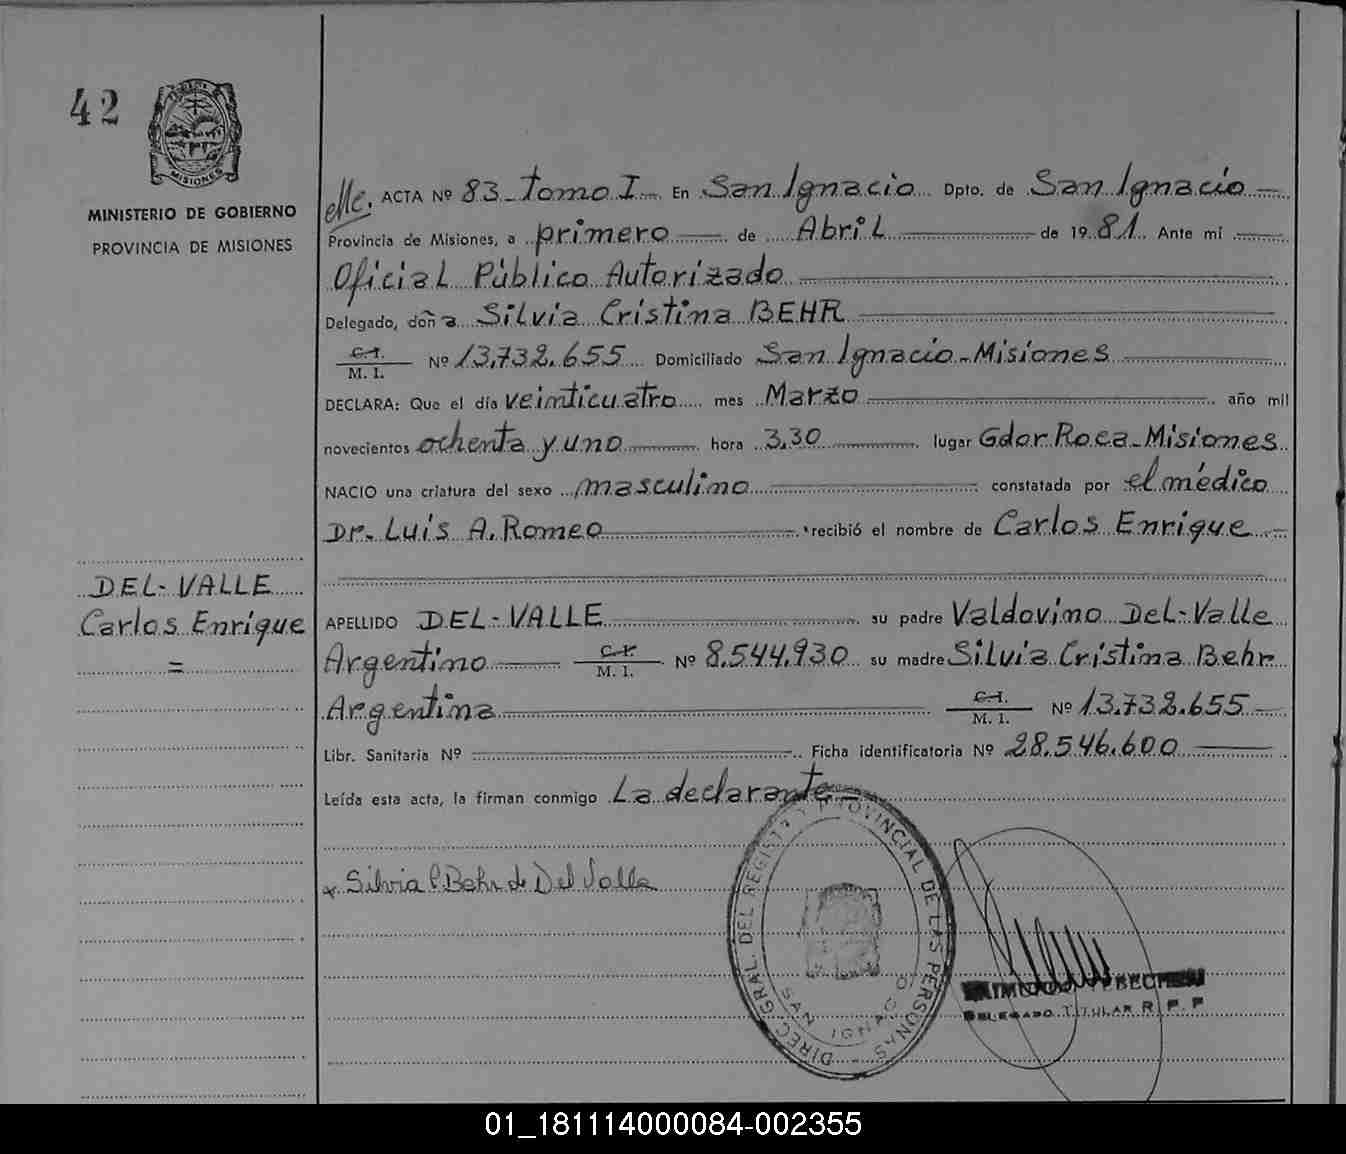 42
MISIONES
MINISTERIO DE GOBIERNO
PROVINCIA DE MISIONES
DEL-VALLE
Carlos Enrique
=
ACTA Nº 83 - Tomo I - En San Ignacio Dpto. de San Ignacio
Provincia de Misiones, a primero de Abril de 1981. Ante mí
Oficial Público Autorizado
Delegado, doña Silvia Cristina BEHR
C.I. / M. I. Nº 13.732.655 Domiciliado San Ignacio - Misiones
DECLARA: Que el día veinticuatro mes Marzo año mil
novecientos ochenta y uno hora 3,30 lugar Gdor Roca - Misiones
NACIO una criatura del sexo masculino constatada por el médico
Dr. Luis A. Romeo recibió el nombre de Carlos Enrique
APELLIDO DEL-VALLE su padre Valdovino Del-Valle
Argentino C.I. / M. I. Nº 8.544.930 su madre Silvia Cristina Behr
Argentina C.I. / M. I. Nº 13.732.655
Libr. Sanitaria Nº Ficha identificatoria Nº 28.546.600
Leída esta acta, la firman conmigo La declarante
Silvia C. Behr de Del Valle
DIREC. GRAL. DEL REGISTRO PROVINCIAL DE LAS PERSONAS
SAN IGNACIO
DELEGADO TITULAR R. P. P
01_181114000084-002355